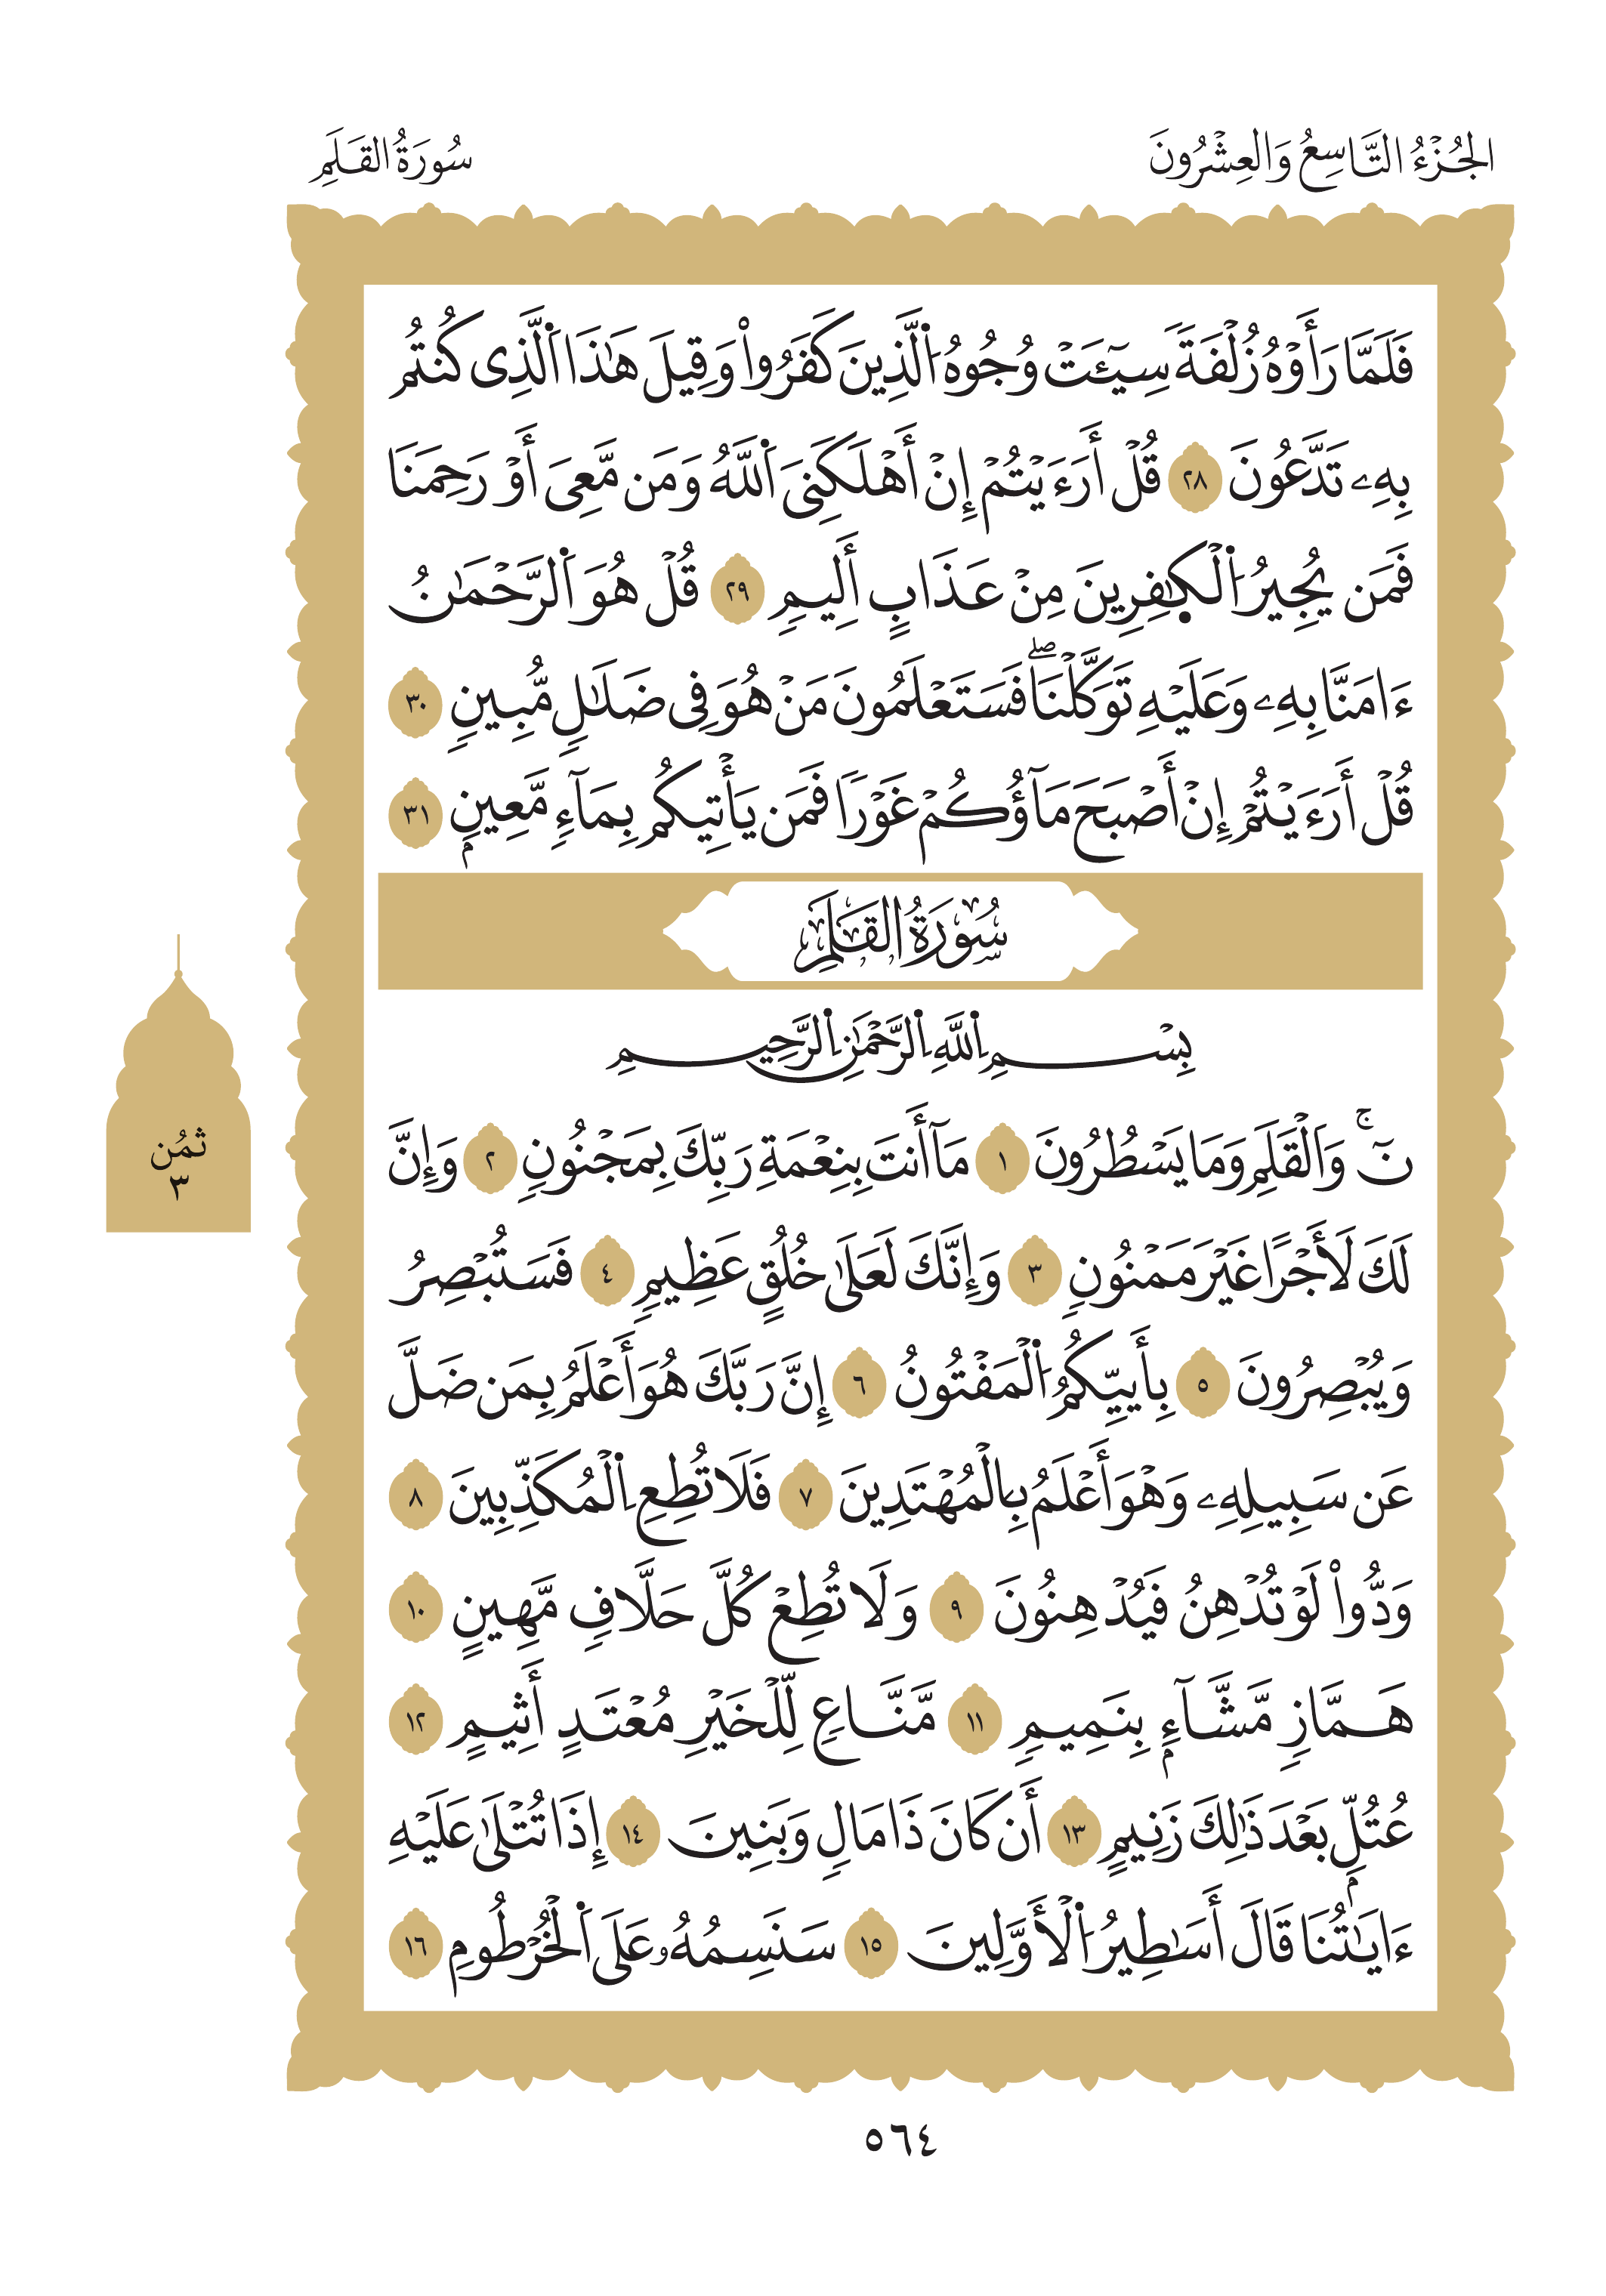 الجُزْءُ التَّاسِعُ وَالعِشْرُونَ
سُورَةُ القَلَمِ
فَلَمَّا رَأَوْهُ زُلْفَةً سِيٓـَٔتْ وُجُوهُ اُ۬لَّذِينَ كَفَرُواْ وَقِيلَ هَٰذَا اَ۬لَّذِى كُنتُم
بِهِۦ تَدَّعُونَ ٢٨ قُلْ أَرَءَيْتُمْ إِنْ أَهْلَكَنِىَ اَ۬للَّهُ وَمَن مَّعِىَ أَوْ رَحِمَنَا
فَمَن يُجِيرُ اُ۬لْكٰ۪فِرِينَ مِنْ عَذَابٍ أَلِيمٍ ٢٩ قُلْ هُوَ اَ۬لرَّحْمَٰنُ
ءَامَنَّا بِهِۦ وَعَلَيْهِ تَوَكَّلْنَاۖ فَسَتَعْلَمُونَ مَنْ هُوَ فِى ضَلَٰلٍ مُّبِينٍ ٣٠
قُلْ أَرَءَيْتُمْ إِنْ أَصْبَحَ مَآؤُكُمْ غَوْرًا فَمَن يَأْتِيكُم بِمَآءٍ مَّعِينٍۭ ٣١
سُورَةُ القَلَمِ
بِسْمِ اِ۬للَّهِ اِ۬لرَّحْمَٰنِ اِ۬لرَّحِيمِ
نٓۚ وَالْقَلَمِ وَمَا يَسْطُرُونَ ١ مَآ أَنتَ بِنِعْمَةِ رَبِّكَ بِمَجْنُونٍ ٢ وَإِنَّ
لَكَ لَأَجْرًا غَيْرَ مَمْنُونٍ ٣ وَإِنَّكَ لَعَلَىٰ خُلُقٍ عَظِيمٍ ٤ فَسَتُبْصِرُ
وَيُبْصِرُونَ ٥ بِأَييِّكُمُ اُ۬لْمَفْتُونُ ٦ إِنَّ رَبَّكَ هُوَ أَعْلَمُ بِمَن ضَلَّ
عَن سَبِيلِهِۦ وَهْوَ أَعْلَمُ بِالْمُهْتَدِينَ ٧ فَلَا تُطِعِ اِ۬لْمُكَذِّبِينَ ٨
وَدُّواْ لَوْ تُدْهِنُ فَيُدْهِنُونَ ٩ وَلَا تُطِعْ كُلَّ حَلَّافٍ مَّهِينٍ ١٠
هَمَّازٍ مَّشَّآءٍۭ بِنَمِيمٍ ١١ مَّنَّاعٍ لِّلْخَيْرِ مُعْتَدٍ أَثِيمٍ ١٢
عُتُلٍّۭ بَعْدَ ذَٰلِكَ زَنِيمٍ ١٣ أَن كَانَ ذَا مَالٍ وَبَنِينَ ١٤ إِذَا تُتْلَىٰ عَلَيْهِ
ءَايَٰتُنَا قَالَ أَسَٰطِيرُ اُ۬لْأَوَّلِينَ ١٥ سَنَسِمُهُۥ عَلَى اَ۬لْخُرْطُومِ ١٦
ثُمُن
٣
٥٦٤